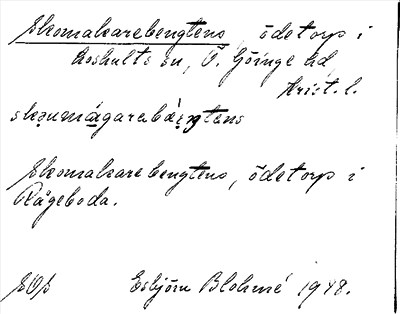 Skomakarebengtens, ödetorp i
Loshults sn, Ö. Göinge hd,
Krist. l.
skəumágarebä̀ŋtens
Skomakarebengtens, ödetorp i
Rågeboda.
Esbjörn Blohmé 1948.